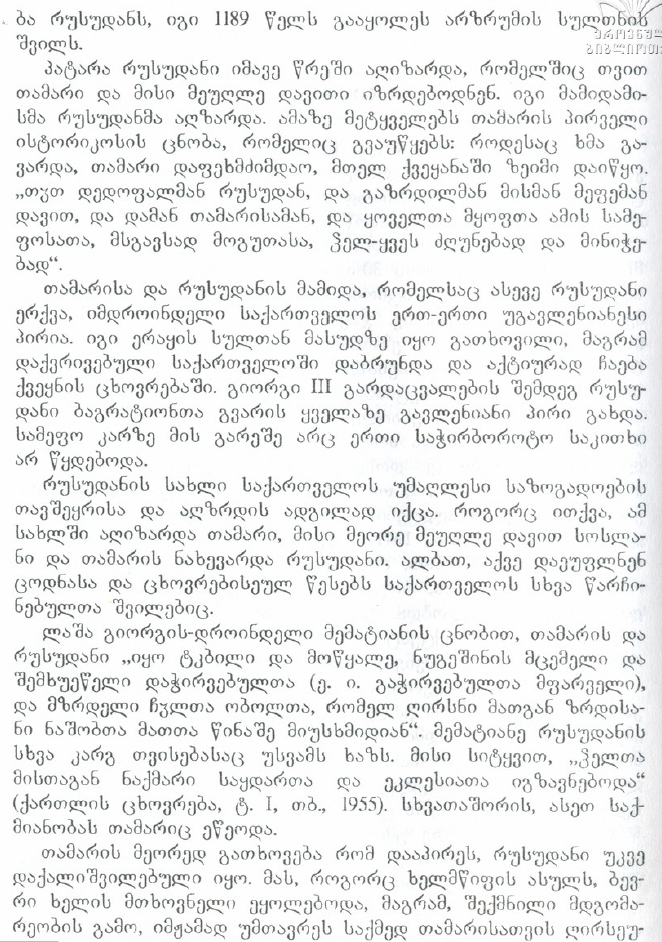 ბა რუსუდანს, იგი 1189 წელს გააყოლეს არზრუმის სულთნის
შვილს.
პატარა რუსუდანი იმავე წრეში აღიზარდა, რომელშიც თვით
თამარი და მისი მეუღლე დავითი იზრდებოდნენ. იგი მამიდამი-
სმა რუსუდანმა აღზარდა. ამაზე მეტყველებს თამარის პირველი
ისტორიკოსის ცნობა, რომელიც გვაუწყებს: როდესაც ხმა გა-
ვარდა, თამარი დაფეხმძიმდაო, მთელ ქვეყანაში ზეიმი დაიწყო.
„თჳთ დედოფალმან რუსუდან, და გაზრდილმან მისმან მეფემან
დავით, და დამან თამარისამან, და ყოველთა მყოფთა ამის სამე-
ფოსათა, მსგავსად მოგუთასა, ჴელ-ყვეს ძღუნებად და მინიჭე-
ბად“.
თამარისა და რუსუდანის მამიდა, რომელსაც ასევე რუსუდანი
ერქვა, იმდროინდელი საქართველოს ერთ-ერთი უგავლენიანესი
პირია. იგი ერაყის სულთან მასუდზე იყო გათხოვილი, მაგრამ
დაქვრივებული საქართველოში დაბრუნდა და აქტიურად ჩაება
ქვეყნის ცხოვრებაში. გიორგი III გარდაცვალების შემდეგ რუსუ-
დანი ბაგრატიონთა გვარის ყველაზე გავლენიანი პირი გახდა.
სამეფო კარზე მის გარეშე არც ერთი საჭირბოროტო საკითხი
არ წყდებოდა.
რუსუდანის სახლი საქართველოს უმაღლესი საზოგადოების
თავშეყრისა და აღზრდის ადგილად იქცა. როგორც ითქვა, ამ
სახლში აღიზარდა თამარი, მისი მეორე მეუღლე დავით სოსლა-
ნი და თამარის ნახევარდა რუსუდანი. ალბათ, აქვე დაეუფლნენ
ცოდნასა და ცხოვრებისეულ წესებს საქართველოს სხვა წარჩი-
ნებულთა შვილებიც.
ლაშა გიორგის-დროინდელი მემატიანის ცნობით, თამარის და
რუსუდანი „იყო ტკბილი და მოწყალე, ნუგეშინის მცემელი და
შემხუეწელი დაჭირვებულთა (ე. ი. გაჭირვებულთა მფარველი),
და მზრდელი ჩჳლთა ობოლთა, რომელ ღირსნი მათგან ზრდისა-
ნი ნაშობთა მათთა წინაშე მიუსხმიდიან“. მემატიანე რუსუდანის
სხვა კარგ თვისებასაც უსვამს ხაზს. მისი სიტყვით, „ჴელთა
მისთაგან ნაქმარი საყდართა და ეკლესიათა იგზავნებოდა“
(ქართლის ცხოვრება, ტ. I, თბ., 1955). სხვათაშორის, ასეთ საქ-
მიანობას თამარიც ეწეოდა.
თამარის მეორედ გათხოვება რომ დააპირეს, რუსუდანი უკვე
დაქალიშვილებული იყო. მას, როგორც ხელმწიფის ასულს, ბევ-
რი ხელის მთხოვნელი ეყოლებოდა, მაგრამ, შექმნილი მდგომა-
რეობის გამო, იმჟამად უმთავრეს საქმედ თამარისათვის ღირსეუ-